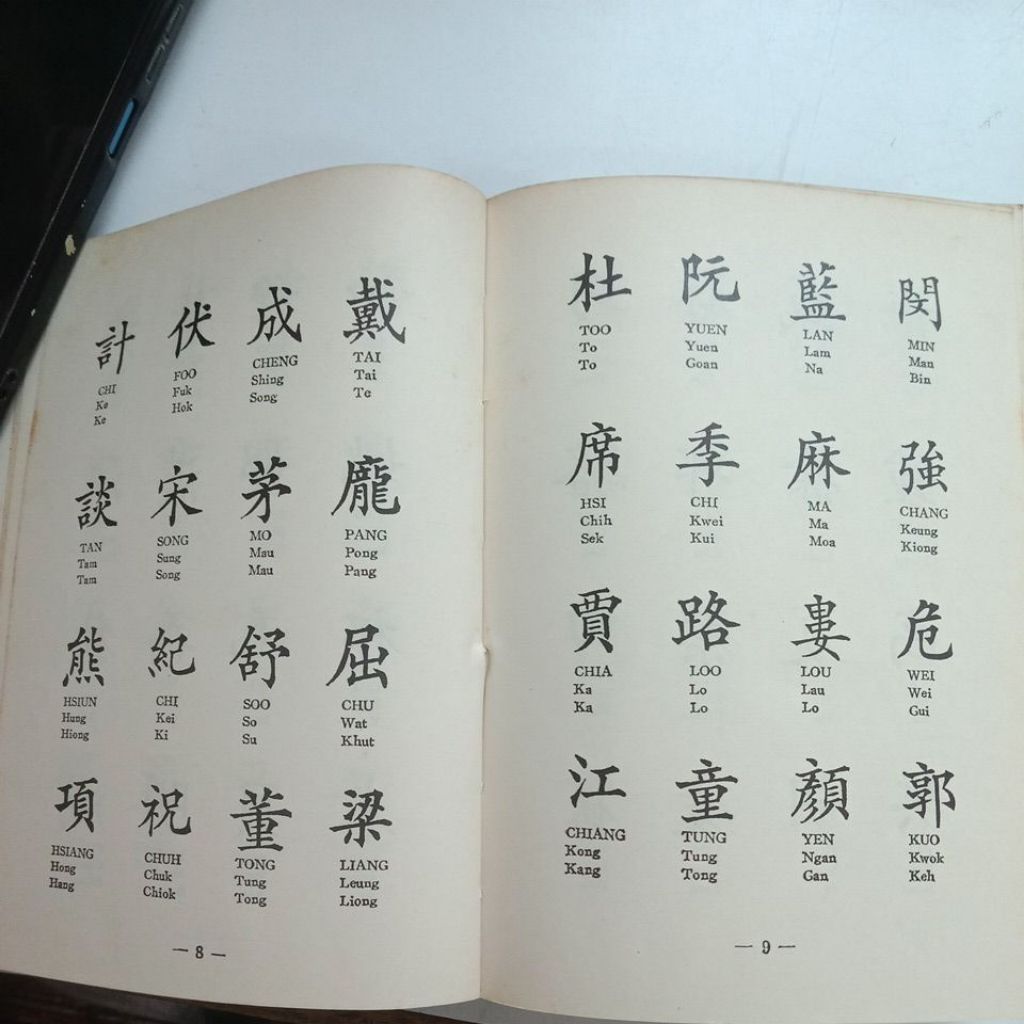 計 伏 成 戴
CHI FOO CHENG TAI
Ke Fuk Shing Tai
Ke Hok Song Te
談 宋 茅 龐
TAN SONG MO PANG
Tam Sung Mau Pong
Tam Song Mau Pang
熊 紀 舒 屈
HSIUN CHI SOO CHU
Hung Kei So Wat
Hiong Ki Su Khut
項 祝 董 梁
HSIANG CHUH TONG LIANG
Hong Chuk Tung Leung
Hang Chiok Tong Liong
— 8 —
杜 阮 藍 閔
TOO YUEN LAN MIN
To Yuen Lam Man
To Goan Na Bin
席 季 麻 強
HSI CHI MA CHANG
Chih Kwei Ma Keung
Sek Kui Moa Kiong
賈 路 婁 危
CHIA LOO LOU WEI
Ka Lo Lau Wei
Ka Lo Lo Gui
江 童 顏 郭
CHIANG TUNG YEN KUO
Kong Tung Ngan Kwok
Kang Tong Gan Keh
— 9 —